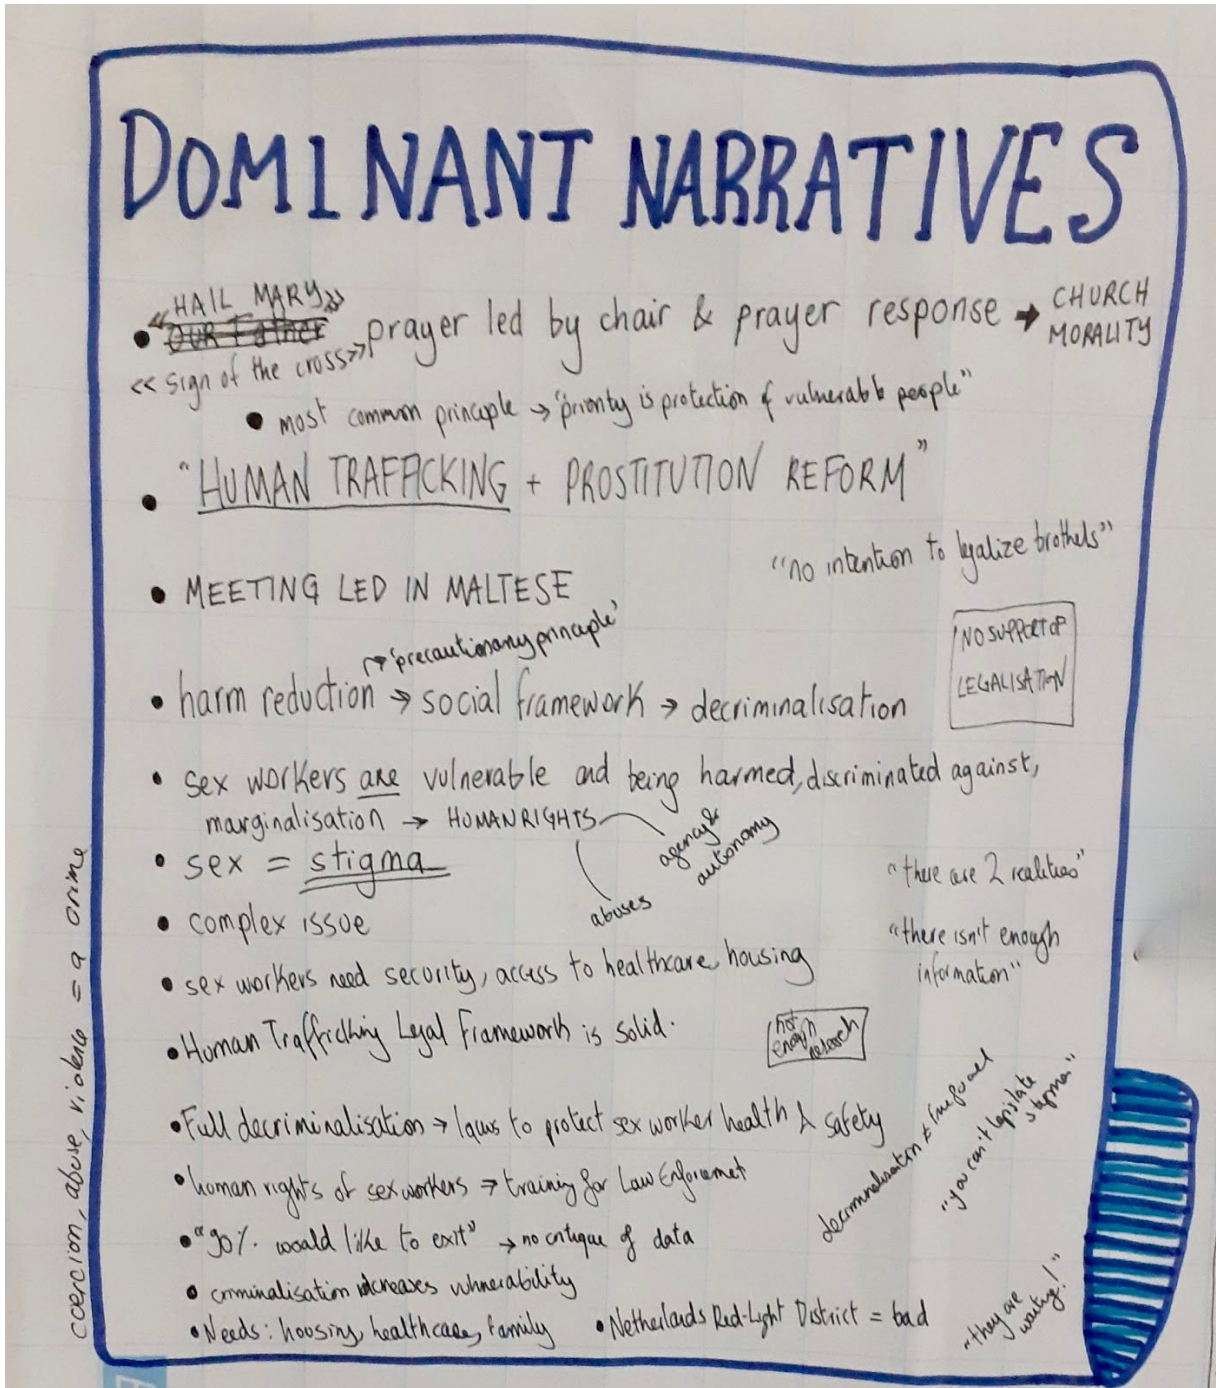 DOMINANT NARRATIVES
«HAIL MARY»
• Our Father prayer led by chair & prayer response → CHURCH MORALITY
<< sign of the cross>>
• most common principle → "priority is protection of vulnerable people"
• "HUMAN TRAFFICKING + PROSTITUTION REFORM"
"no intention to legalize brothels"
• MEETING LED IN MALTESE
→ 'precautionary principle'
NO SUPPORT OF
LEGALISATION
• harm reduction → social framework → decriminalisation
• sex workers are vulnerable and being harmed, discriminated against,
marginalisation → HUMAN RIGHTS
agency &
autonomy
abuses
• sex = stigma
"there are 2 realities"
• complex issue
"there isn't enough
information"
• sex workers need security, access to healthcare, housing
• Human Trafficking Legal Framework is solid.
not
enough
research
• Full decriminalisation → laws to protect sex worker health & safety
decriminalisation ≠ free for all
"you can't legislate
stigma"
• human rights of sex workers → training for Law Enforcemet
• "90% would like to exit" → no critique of data
• criminalisation increases vulnerability
• Needs: housing, healthcare, family
• Netherlands Red-Light District = bad
"they are
waiting!"
coercion, abuse, violence = a crime